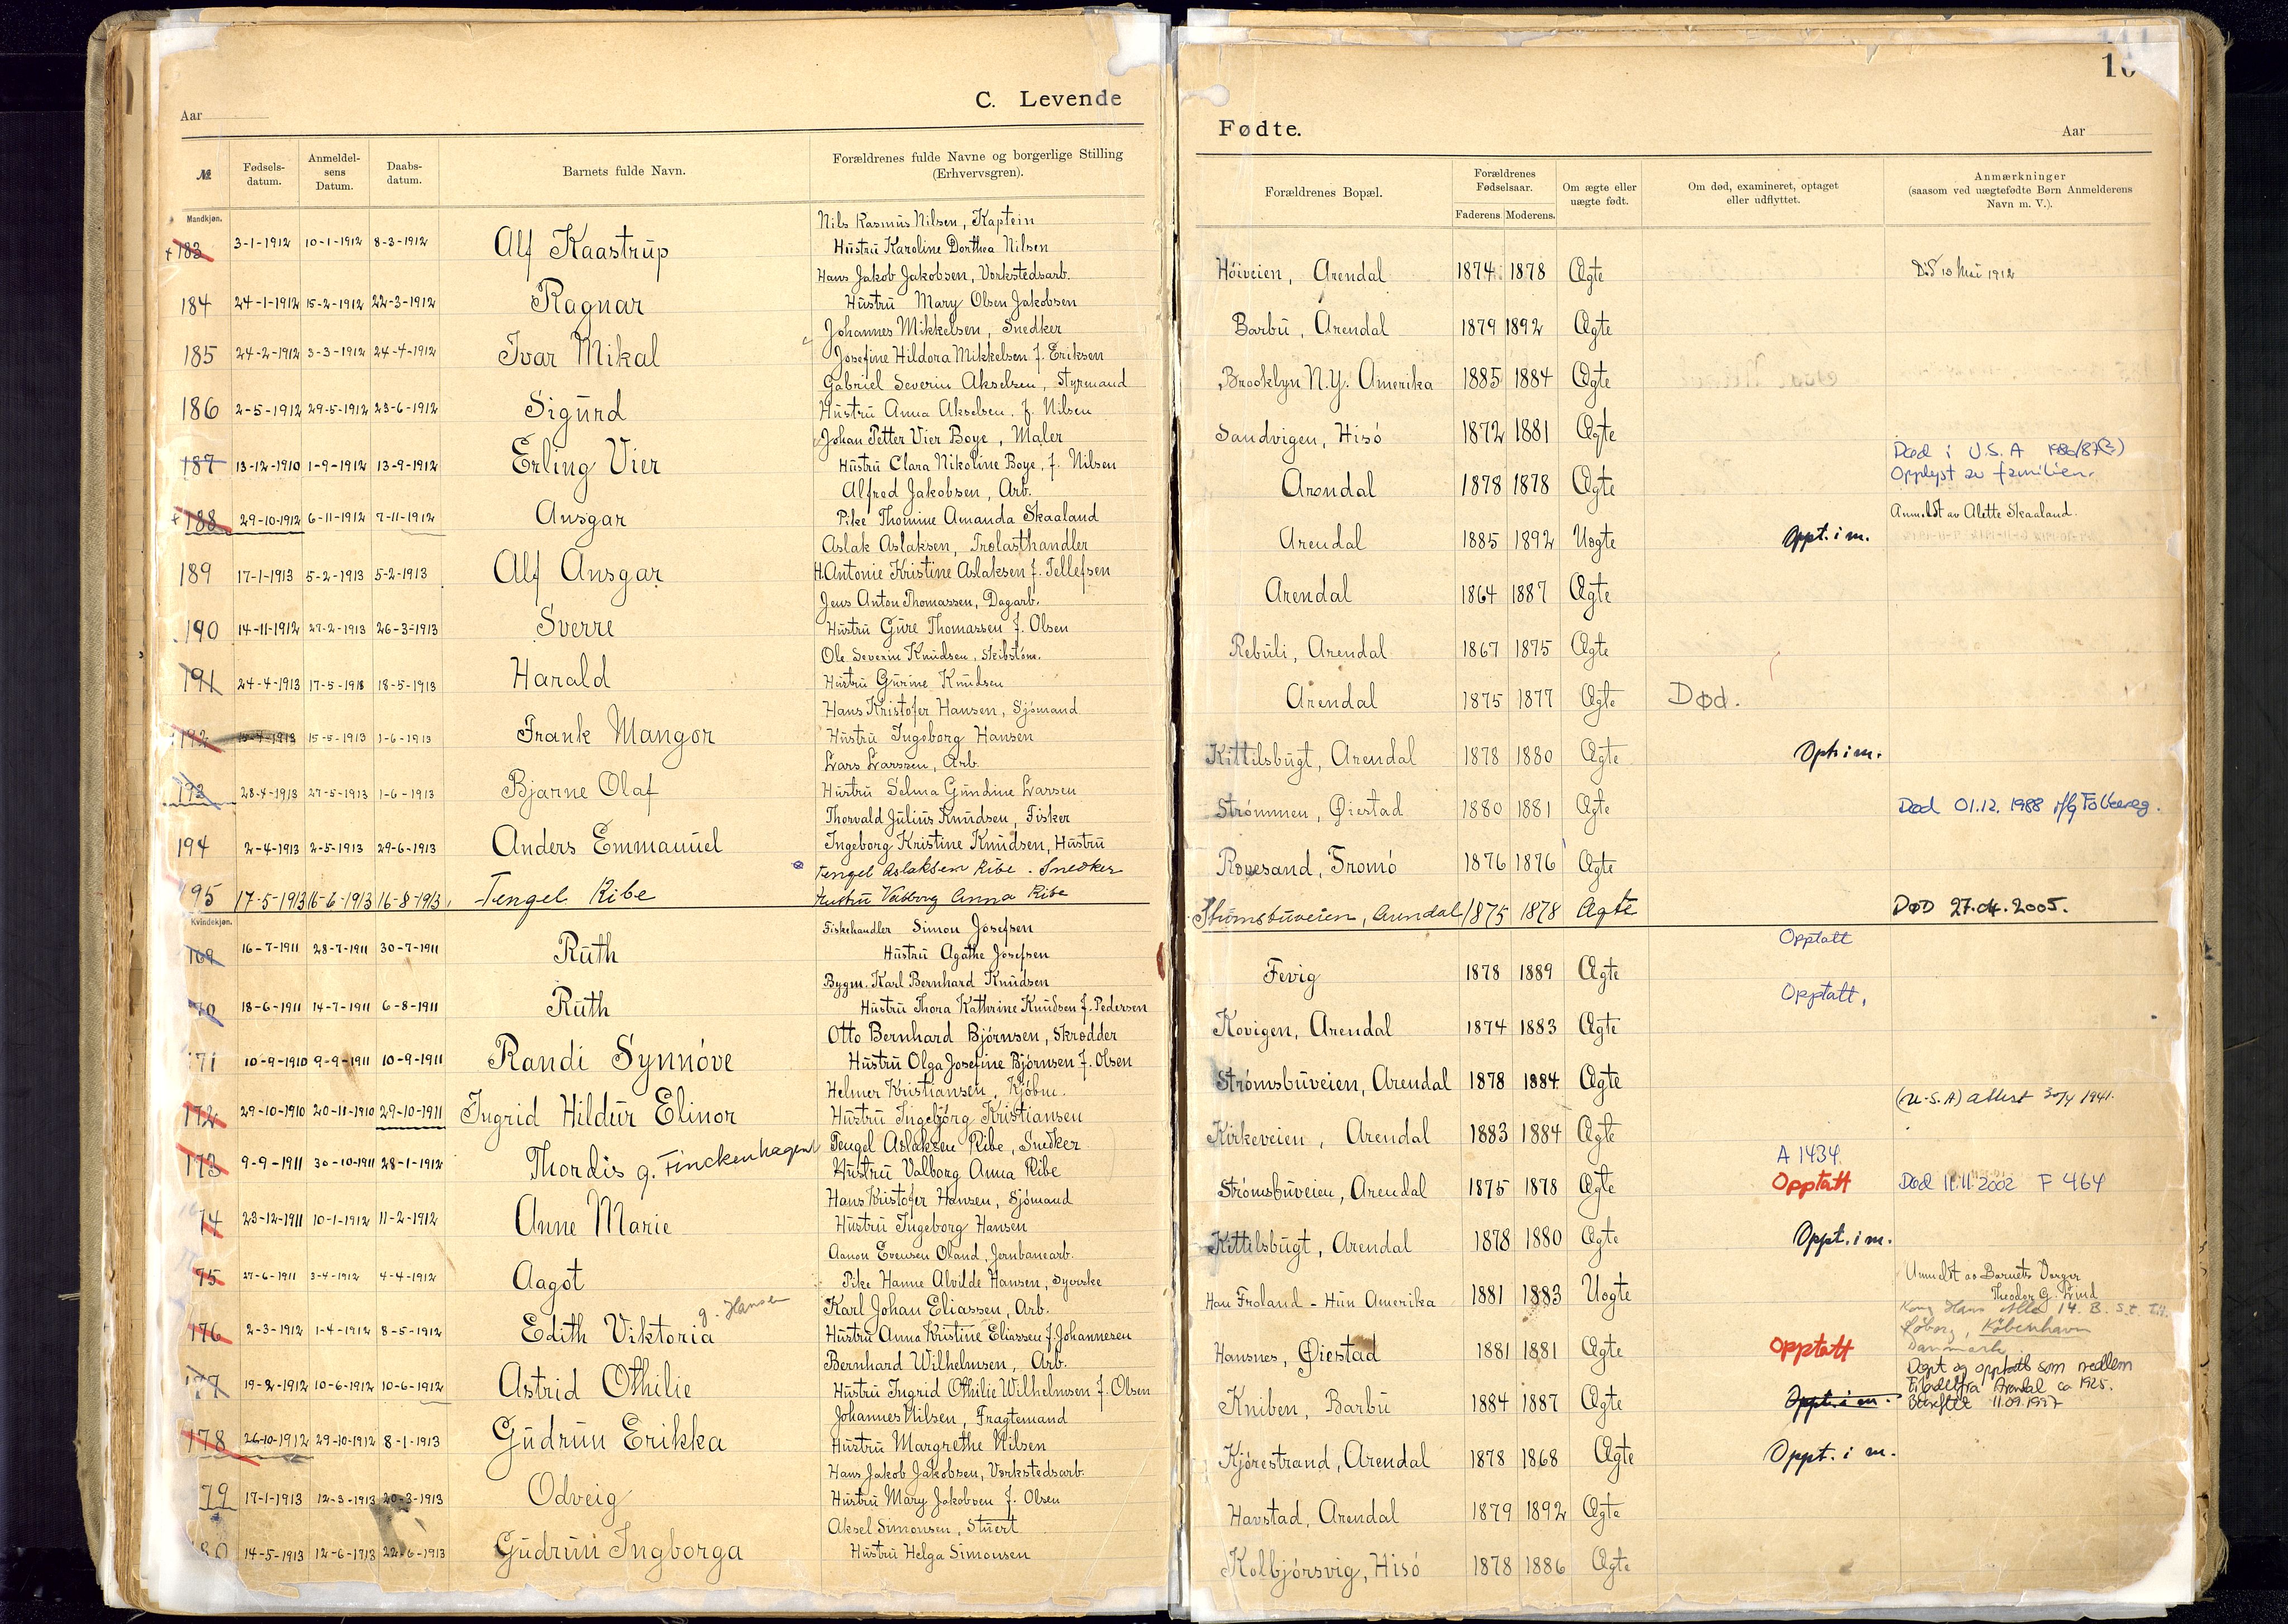 C. Levende
Aar
№ Fødsels-datum. Anmeldel-sens Datum. Daabs-datum. Barnets fulde Navn. Forældrenes fulde Navne og borgerlige Stilling (Erhvervsgren).
Mandkjøn.
Nils Rasmus Nilsen, Kaptein
+ 183 3-1-1912 10-1-1912 8-3-1912 Alf Kaastrup Hustru Karoline Dorthea Nilsen
Hans Jakob Jakobsen, Verkstedsarb.
184 24-1-1912 15-2-1912 22-3-1912 Ragnar Hustru Mary Olsen Jakobsen
Johannes Mikkelsen, Snedker
185 24-2-1912 3-3-1912 24-4-1912 Ivar Mikal Josefine Hildora Mikkelsen f. Eriksen
Gabriel Severin Akselsen, Styrmand
186 2-5-1912 29-5-1912 23-6-1912 Sigurd Hustru Anna Akselsen. f. Nilsen
Johan Petter Vier Boye, Maler
187 13-12-1910 1-9-1912 13-9-1912 Erling Vier Hustru Clara Nikoline Boye, f. Nilsen
Alfred Jakobsen, Arb.
+ 188 29-10-1912 6-11-1912 7-11-1912 Ansgar Pike Thomine Amanda Skaaland
Aslak Aslaksen, Trelasthandler
189 17-1-1913 5-2-1913 5-2-1913 Alf Ansgar H. Antonie Kristine Aslaksen f. Tellefsen
Jens Anton Thomassen, Dagarb.
190 14-11-1912 27-2-1913 26-3-1913 Sverre Hustru Gure Thomassen f. Olsen
Ole Severin Knudsen, Skibstøm.
191 24-4-1913 17-5-1913 18-5-1913 Harald Hustru Gurine Knudsen
Hans Kristofer Hansen, Sjómand
192 15-5-1913 1-6-1913 Frank Mangor Hustru Ingeborg Hansen
Lars Larssen, Arb.
193 28-4-1913 27-5-1913 1-6-1913 Bjarne Olaf Hustru Selma Gundine Larsen
Thorvald Julius Knudsen, Fisker
194 2-4-1913 2-5-1913 29-6-1913 Anders Emmanuel Ingeborg Kristine Knudsen, Hustru
Tengel Aslaksen Ribe. Snedker
195 17-5-1913 16-6-1913 16-8-1913 Tengel Ribe Hustru Valborg Anna Ribe
Kvindekjøn.
Fiskehandler Simon Josefsen
169 16-7-1911 28-7-1911 30-7-1911 Ruth Hustru Agathe Josefsen
Bygm. Karl Bernhard Knudsen
70 18-6-1911 14-7-1911 6-8-1911 Ruth Hustru Thora Kathrine Knudsen f. Pedersen
Otto Bernhard Bjórnsen, Skrædder
171 10-9-1910 9-9-1911 10-9-1911 Randi Synnóve Hustru Olga Josefine Bjórnsen f. Olsen
Helmer Kristiansen, Kjóbm.
172 29-10-1910 20-11-1910 29-10-1911 Ingrid Hildur Elinor Hustru Ingebjórg Kristiansen
Tengel Aslaksen Ribe, Snedker
173 9-9-1911 30-10-1911 28-1-1912 Thordis g. Finckenhagen Hustru Valborg Anna Ribe
Hans Kristofer Hansen, Sjómand
74 23-12-1911 10-1-1912 11-2-1912 Anne Marie Hustru Ingeborg Hansen
Aanon Evensen Oland, Jernbanearb.
75 27-6-1911 3-4-1912 4-4-1912 Aagot Pike Hanne Alvilde Hansen, Syerske
Karl Johan Eliassen, Arb.
176 2-3-1912 1-4-1912 8-5-1912 Edith Viktoria g. Hansen Hustru Anna Kristine Eliassen f. Johannesen
Bernhard Wilhelmsen, Arb.
177 19-2-1912 10-6-1912 10-6-1912 Astrid Othilie Hustru Ingrid Othilie Wilhelmsen f. Olsen
Johannes Nilsen, Fragtemand
178 26-10-1912 29-10-1912 8-1-1913 Gudrun Erikka Hustru Margrethe Nilsen
Hans Jakob Jakobsen, Verkstedsarb.
79 17-1-1913 12-3-1913 20-3-1913 Odveig Hustru Mary Jakobsen f. Olsen
Aksel Simonsen, Stuert
80 14-5-1913 12-6-1913 22-6-1913 Gudrun Ingborga Hustru Helga Simonsen
10
Fødte.
Aar
Forældrenes Bopæl. Forældrenes Fødselsaar. Faderens. Moderens. Om ægte eller uægte født. Om død, examineret, optaget eller udflyttet. Anmærkninger (saasom ved uægtefødte Børn Anmelderens Navn m. V.).
Hóiveien, Arendal 1874 1878 Ægte Død 10 Mai 1912
Barbu, Arendal 1879 1892 Ægte
Brooklyn N.Y. Amerika 1885 1884 Ægte
Sandvigen, Hisó 1872 1881 Ægte
Død i U.S.A 1986/87(?)
Opplyst av familien.
Arendal 1878 1878 Ægte
Anmeldt av Alette Skaaland.
Arendal 1885 1892 Uegte Oppt. i m.
Arendal 1864 1887 Ægte
Rebuli, Arendal 1867 1875 Ægte
Arendal 1875 1877 Ægte Død.
Kittilsbugt, Arendal 1878 1880 Ægte Opt. i m.
Strómmen, Øiestad 1880 1881 Ægte Død 01.12.1988 iflg Folkereg.
Revesand, Tromó 1876 1876 Ægte
Strømsbuveien, Arendal 1875 1878 Ægte DØD 27.04.2005.
Opptatt
Fevig 1878 1889 Ægte
Opptatt,
Kovigen, Arendal 1874 1883 Ægte
Strómsbuveien, Arendal 1878 1884 Ægte
(U.S.A) attest 30/4 1941.
Kirkeveien, Arendal 1883 1884 Ægte
A 1434
Strómsbuveien, Arendal 1875 1878 Ægte Opptatt Død 11.11.2002 F 464
Kittilsbugt, Arendal 1878 1880 Ægte Oppt. i m.
Anmeldt av Barnets Verger
Theodor G. Lind
Han Froland - Hun Amerika 1881 1883 Uegte
Kong Hans Alle 14. B. s.t. T.H.
Søborg, København
Danmark
Hansnes, Øiestad 1881 1881 Ægte Opptatt
Døpt og opptatt som medlem
Filadelfia Arendal ca 1925.
Bekreftet 11.09.1997
Kniben, Barbu 1884 1887 Ægte Oppt. i m.
Kjórestrand, Arendal 1878 1868 Ægte Oppt. i m.
Havstad, Arendal 1879 1892 Ægte
Kolbjórsvig, Hisó 1878 1886 Ægte